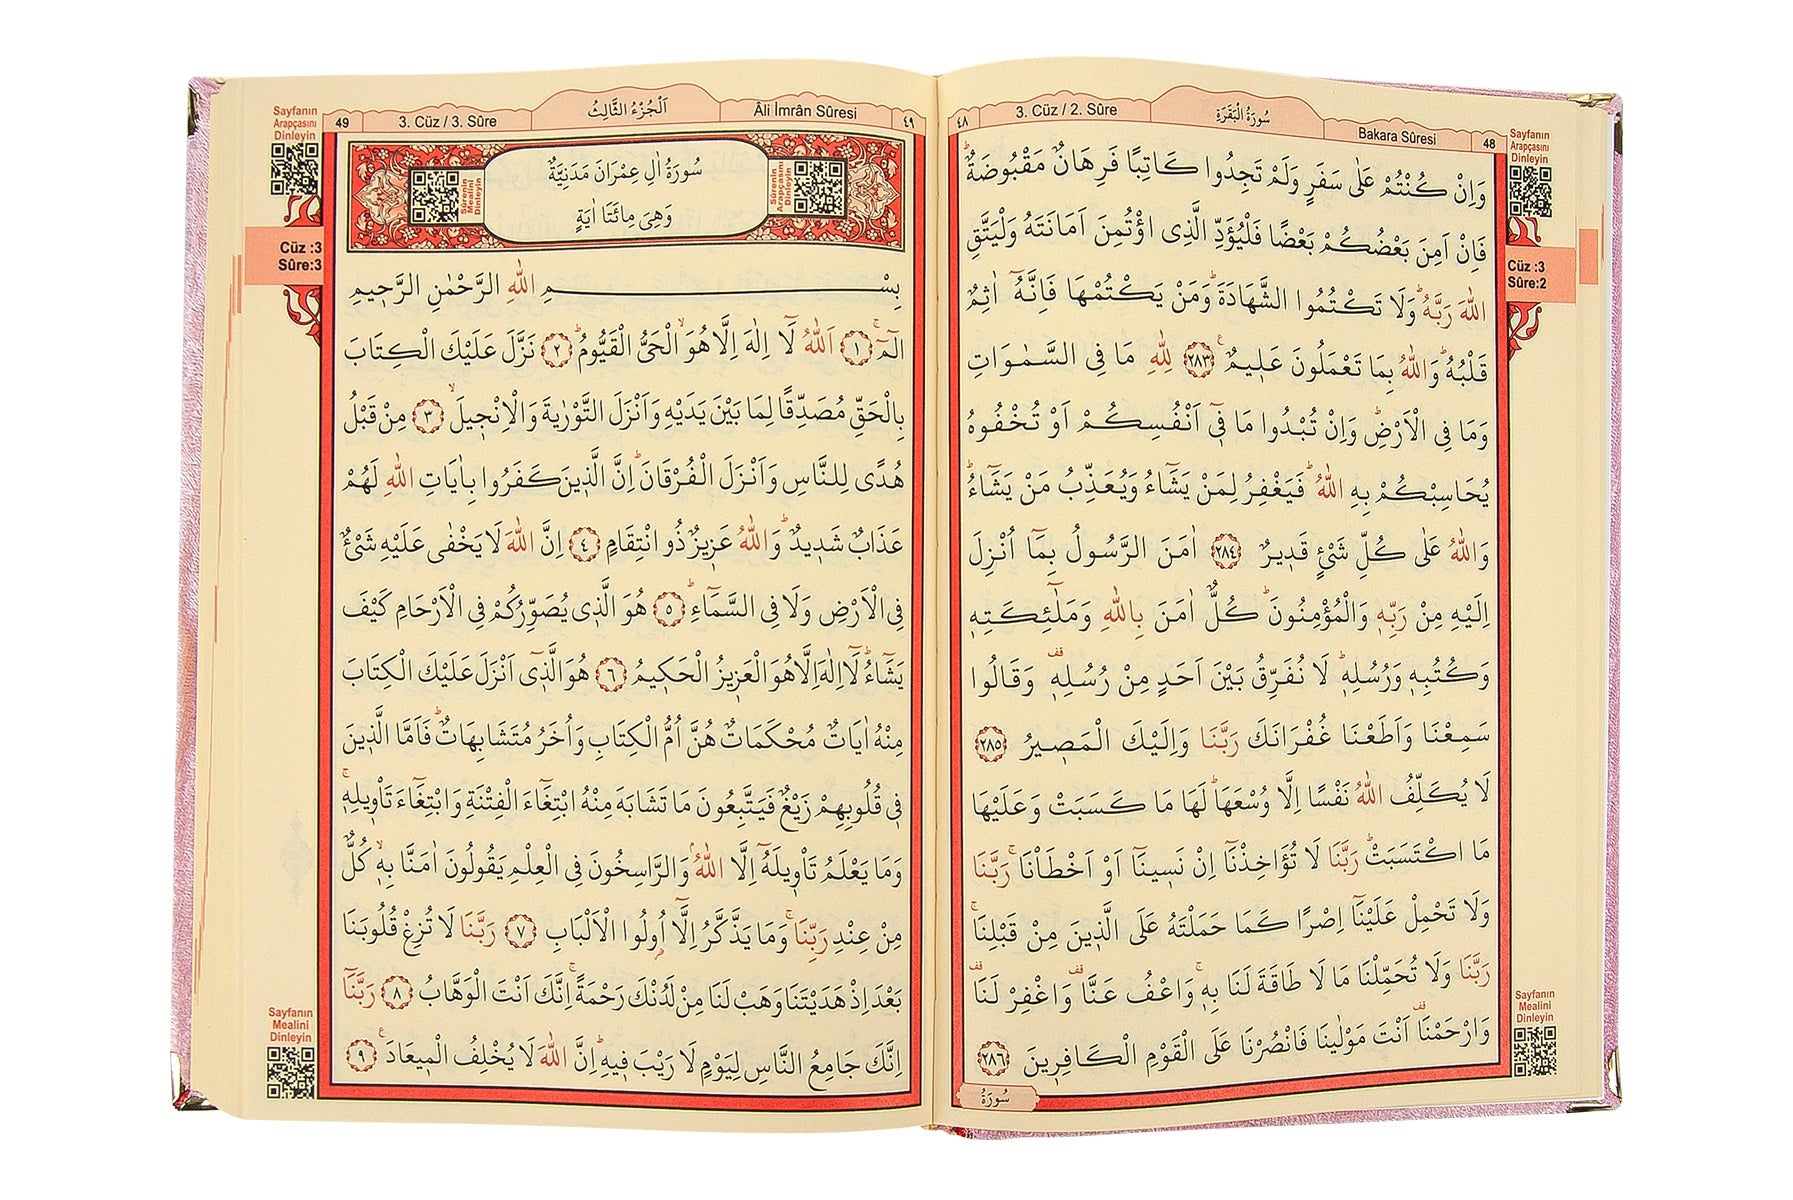 48
Bakara Sûresi
سُورَةُ الْبَقَرَةِ
3. Cüz / 2. Sûre
٤٨
Sayfanın
Arapçasını
Dinleyin
Cüz :3
Sûre:2
وَاِنْ كُنْتُمْ عَلٰى سَفَرٍ وَلَمْ تَجِدُوا كَاتِبًا فَرِهَانٌ مَقْبُوضَةٌۜ
فَاِنْ اَمِنَ بَعْضُكُمْ بَعْضًا فَلْيُؤَدِّ الَّذِى اؤْتُمِنَ اَمَانَتَهُ وَلْيَتَّقِ
اللّٰهَ رَبَّهُۜ وَلَا تَكْتُمُوا الشَّهَادَةَۜ وَمَنْ يَكْتُمْهَا فَاِنَّهُٓ اٰثِمٌ
قَلْبُهُۜ وَاللّٰهُ بِمَا تَعْمَلُونَ عَلٖيمٌۚ ﴿٢٨٣﴾ لِلّٰهِ مَا فِى السَّمٰوَاتِ
وَمَا فِى الْاَرْضِۜ وَاِنْ تُبْدُوا مَا فٖٓى اَنْفُسِكُمْ اَوْ تُخْفُوهُ
يُحَاسِبْكُمْ بِهِ اللّٰهُۜ فَيَغْفِرُ لِمَنْ يَشَٓاءُ وَيُعَذِّبُ مَنْ يَشَٓاءُۜ
وَاللّٰهُ عَلٰى كُلِّ شَىْءٍ قَدٖيرٌ ﴿٢٨٤﴾ اٰمَنَ الرَّسُولُ بِمَٓا اُنْزِلَ
اِلَيْهِ مِنْ رَبِّهٖ وَالْمُؤْمِنُونَۜ كُلٌّ اٰمَنَ بِاللّٰهِ وَمَلٰٓئِكَتِهٖ
وَكُتُبِهٖ وَرُسُلِهٖۜ لَا نُفَرِّقُ بَيْنَ اَحَدٍ مِنْ رُسُلِهٖ قف وَقَالُوا
سَمِعْنَا وَاَطَعْنَا غُفْرَانَكَ رَبَّنَا وَاِلَيْكَ الْمَصٖيرُ ﴿٢٨٥﴾
لَا يُكَلِّفُ اللّٰهُ نَفْسًا اِلَّا وُسْعَهَاۜ لَهَا مَا كَسَبَتْ وَعَلَيْهَا
مَا اكْتَسَبَتْۜ رَبَّنَا لَا تُؤَاخِذْنَٓا اِنْ نَسٖينَٓا اَوْ اَخْطَاْنَاۚ رَبَّنَا
وَلَا تَحْمِلْ عَلَيْنَٓا اِصْرًا كَمَا حَمَلْتَهُ عَلَى الَّذٖينَ مِنْ قَبْلِنَاۚ
رَبَّنَا وَلَا تُحَمِّلْنَا مَا لَا طَاقَةَ لَنَا بِهٖۚ وَاعْفُ عَنَّا قف وَاغْفِرْ لَنَا قف
وَارْحَمْنَا قف اَنْتَ مَوْلٰينَا فَانْصُرْنَا عَلَى الْقَوْمِ الْكَافِرٖينَ ﴿٢٨٦﴾
سُورَةُ
Sayfanın
Mealini
Dinleyin
٤٩
Âli İmrân Sûresi
اَلْجُزْءُ الثَّالِثُ
3. Cüz / 3. Sûre
49
Sayfanın
Arapçasını
Dinleyin
Cüz :3
Sûre:3
Sûrenin
Arapçasını
Dinleyin
سُورَةُ اٰلِ عِمْرَانَ مَدَنِيَّةٌ
وَهِىَ مِائَتَا اٰيَةٍ
Sûrenin
Mealini
Dinleyin
بِسْمِ اللّٰهِ الرَّحْمٰنِ الرَّحٖيمِ
الٓمٓۚ ﴿١﴾ اَللّٰهُ لَٓا اِلٰهَ اِلَّا هُوَۙ الْحَىُّ الْقَيُّومُۜ ﴿٢﴾ نَزَّلَ عَلَيْكَ الْكِتَابَ
بِالْحَقِّ مُصَدِّقًا لِمَا بَيْنَ يَدَيْهِ وَاَنْزَلَ التَّوْرٰيةَ وَالْاِنْجٖيلَۙ ﴿٣﴾ مِنْ قَبْلُ
هُدًى لِلنَّاسِ وَاَنْزَلَ الْفُرْقَانَۜ اِنَّ الَّذٖينَ كَفَرُوا بِاٰيَاتِ اللّٰهِ لَهُمْ
عَذَابٌ شَدٖيدٌۜ وَاللّٰهُ عَزٖيزٌ ذُو انْتِقَامٍ ﴿٤﴾ اِنَّ اللّٰهَ لَا يَخْفٰى عَلَيْهِ شَىْءٌ
فِى الْاَرْضِ وَلَا فِى السَّمَٓاءِۜ ﴿٥﴾ هُوَ الَّذٖى يُصَوِّرُكُمْ فِى الْاَرْحَامِ كَيْفَ
يَشَٓاءُۜ لَٓا اِلٰهَ اِلَّا هُوَ الْعَزٖيزُ الْحَكٖيمُ ﴿٦﴾ هُوَ الَّذٖٓى اَنْزَلَ عَلَيْكَ الْكِتَابَ
مِنْهُ اٰيَاتٌ مُحْكَمَاتٌ هُنَّ اُمُّ الْكِتَابِ وَاُخَرُ مُتَشَابِهَاتٌۜ فَاَمَّا الَّذٖينَ
فٖى قُلُوبِهِمْ زَيْغٌ فَيَتَّبِعُونَ مَا تَشَابَهَ مِنْهُ ابْتِغَٓاءَ الْفِتْنَةِ وَابْتِغَٓاءَ تَاْوٖيلِهٖۚ
وَمَا يَعْلَمُ تَاْوٖيلَهُٓ اِلَّا اللّٰهُۢ وَالرَّاسِخُونَ فِى الْعِلْمِ يَقُولُونَ اٰمَنَّا بِهٖۙ كُلٌّ
مِنْ عِنْدِ رَبِّنَاۚ وَمَا يَذَّكَّرُ اِلَّٓا اُولُوا الْاَلْبَابِ ﴿٧﴾ رَبَّنَا لَا تُزِغْ قُلُوبَنَا
بَعْدَ اِذْ هَدَيْتَنَا وَهَبْ لَنَا مِنْ لَدُنْكَ رَحْمَةًۚ اِنَّكَ اَنْتَ الْوَهَّابُ ﴿٨﴾ رَبَّنَٓا
اِنَّكَ جَامِعُ النَّاسِ لِيَوْمٍ لَا رَيْبَ فٖيهِۜ اِنَّ اللّٰهَ لَا يُخْلِفُ الْمٖيعَادَۚ ﴿٩﴾
Sayfanın
Mealini
Dinleyin